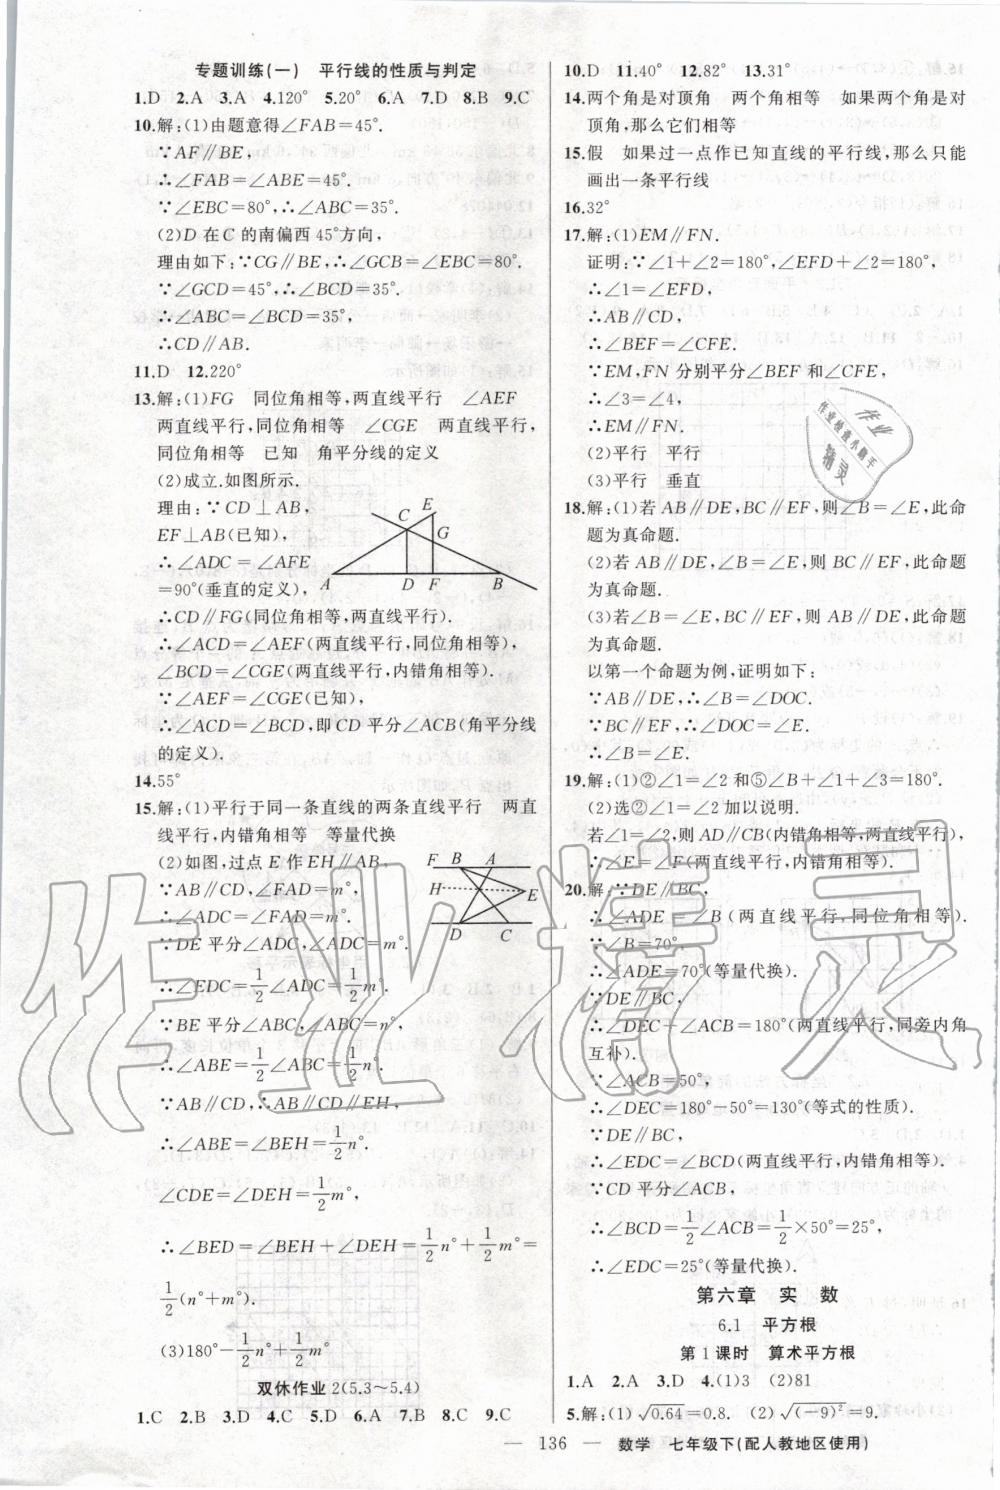 专题训练(一)　平行线的性质与判定
1.D　2.A　3.A　4.120°　5.20°　6.A　7.D　8.B　9.C
10.解:(1)由题意得∠FAB=45°.
∵AF∥BE,
∴∠FAB=∠ABE=45°.
∵∠EBC=80°,∴∠ABC=35°.
(2)D 在 C 的南偏西45°方向,
理由如下:∵CG∥BE,∴∠GCB=∠EBC=80°.
∵∠GCD=45°,∴∠BCD=35°.
∴∠ABC=∠BCD=35°.
∴CD∥AB.
11.D　12.220°
13.解:(1)FG　同位角相等,两直线平行　∠AEF
两直线平行,同位角相等　∠CGE　两直线平行,
同位角相等　已知　角平分线的定义
(2)成立.如图所示.
理由:∵CD⊥AB,
EF⊥AB(已知),
∴∠ADC=∠AFE
=90°(垂直的定义),
C E G A D F B
∴CD∥FG(同位角相等,两直线平行).
∴∠ACD=∠AEF(两直线平行,同位角相等),
∠BCD=∠CGE(两直线平行,内错角相等).
∵∠AEF=∠CGE(已知),
∴∠ACD=∠BCD,即 CD 平分∠ACB(角平分线
的定义).
14.55°
15.解:(1)平行于同一条直线的两条直线平行　两直
线平行,内错角相等　等量代换
(2)如图,过点 E 作 EH∥AB,
∵AB∥CD,∠FAD=m°,
∴∠ADC=∠FAD=m°.
F B A H E D C
∵DE 平分∠ADC,∠ADC=m°,
∴∠EDC=1/2∠ADC=1/2m°.
∵BE 平分∠ABC,∠ABC=n°,
∴∠ABE=1/2∠ABC=1/2n°.
∵AB∥CD,∴AB∥CD∥EH,
∴∠ABE=∠BEH=1/2n°.
∠CDE=∠DEH=1/2m°,
∴∠BED=∠BEH+∠DEH=1/2n°+1/2m°=
1/2(n°+m°).
(3)180°-1/2n°+1/2m°
双休作业2(5.3~5.4)
1.C　2.B　3.D　4.C　5.D　6.A　7.B　8.C　9.C
10.D　11.40°　12.82°　13.31°
14.两个角是对顶角　两个角相等　如果两个角是对
顶角,那么它们相等
15.假　如果过一点作已知直线的平行线,那么只能
画出一条平行线
16.32°
17.解:(1)EM∥FN.
证明:∵∠1+∠2=180°,∠EFD+∠2=180°,
∴∠1=∠EFD,
∴AB∥CD,
∴∠BEF=∠CFE.
∵EM,FN 分别平分∠BEF 和∠CFE,
∴∠3=∠4,
∴EM∥FN.
(2)平行　平行
(3)平行　垂直
18.解:(1)若 AB∥DE,BC∥EF,则∠B=∠E,此命
题为真命题.
(2)若 AB∥DE,∠B=∠E,则 BC∥EF,此命题
为真命题.
(3)若∠B=∠E,BC∥EF,则 AB∥DE,此命题
为真命题.
以第一个命题为例,证明如下:
∵AB∥DE,∴∠B=∠DOC.
∵BC∥EF,∴∠DOC=∠E.
∴∠B=∠E.
19.解:(1)②∠1=∠2 和⑤∠B+∠1+∠3=180°.
(2)选②∠1=∠2 加以说明.
若∠1=∠2,则 AD∥CB(内错角相等,两直线平行),
∴∠E=∠F(两直线平行,内错角相等).
20.解:∵DE∥BC,
∴∠ADE=∠B(两直线平行,同位角相等).
∵∠B=70°,
∴∠ADE=70°(等量代换).
∵DE∥BC,
∴∠DEC+∠ACB=180°(两直线平行,同旁内角
互补).
∵∠ACB=50°,
∴∠DEC=180°-50°=130°(等式的性质).
∵DE∥BC,
∴∠EDC=∠BCD(两直线平行,内错角相等).
∵CD 平分∠ACB,
∴∠BCD=1/2∠ACB=1/2×50°=25°,
∴∠EDC=25°(等量代换).
第六章　实　数
6.1　平方根
第1课时　算术平方根
1.A　2.A　3.D　4.(1)3　(2)81
5.解:(1)√0.64=0.8.　(2)√(-9)²=9.
— 136 —　数学　七年级下(配人教地区使用)
作业
作业检查小助手
精灵
作业精灵